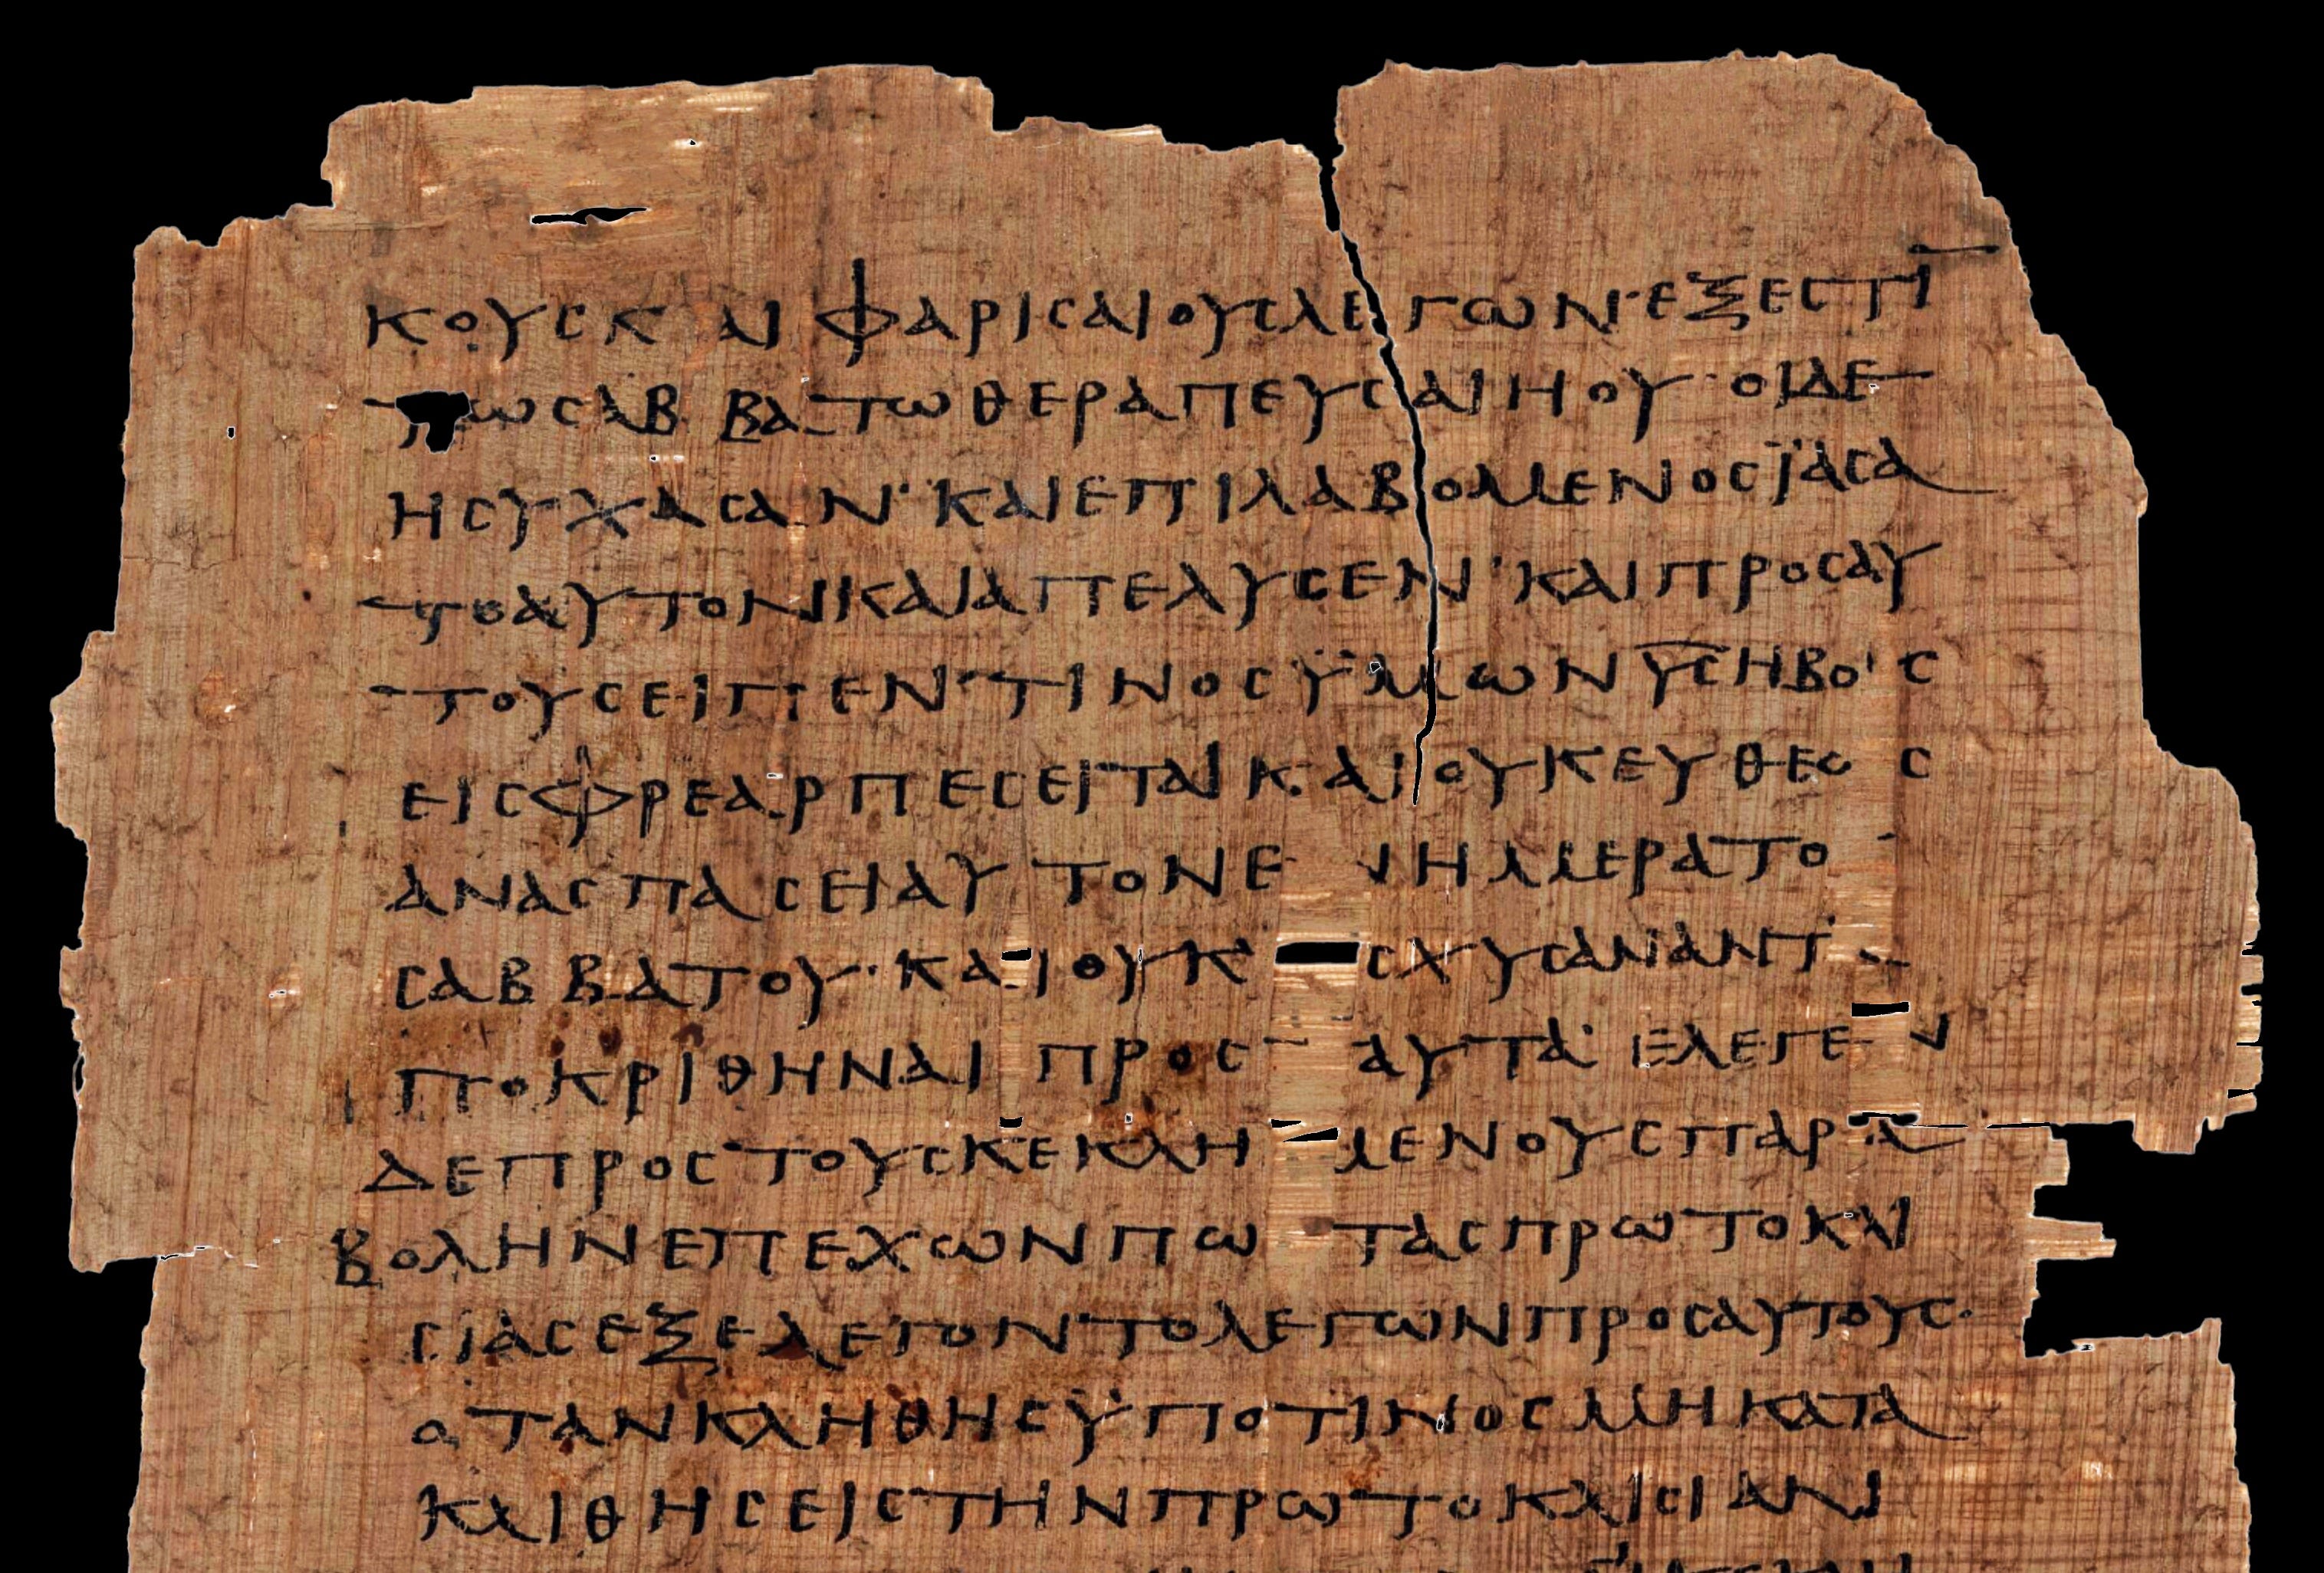 ΚΟΥΣ ΚΑΙ ΦΑΡΙΣΑΙΟΥΣ ΛΕΓΩΝ· ΕΞΕΣΤΙ̅
ΤΩ ΣΑΒΒΑΤΩ ΘΕΡΑΠΕΥΣΑΙ Η ΟΥ· ΟΙ ΔΕ
ΗΣΥΧΑΣΑΝ· ΚΑΙ ΕΠΙΛΑΒΟΜΕΝΟΣ ΪΑΣΑ
ΤΟ ΑΥΤΟΝ ΚΑΙ ΑΠΕΛΥΣΕΝ· ΚΑΙ ΠΡΟΣ ΑΥ
ΤΟΥΣ ΕΙΠΕΝ· ΤΙΝΟΣ ΫΜΩΝ Υ̅Σ̅ Η ΒΟΥΣ
ΕΙΣ ΦΡΕΑΡ ΠΕΣΕΙΤΑΙ ΚΑΙ ΟΥΚ ΕΥΘΕΩΣ
ΑΝΑΣΠΑΣΕΙ ΑΥΤΟΝ ΕΝ ΗΜΕΡΑ ΤΟΥ
ΣΑΒΒΑΤΟΥ· ΚΑΙ ΟΥΚ ΙΣΧΥΣΑΝ ΑΝΤΑ
ΠΟΚΡΙΘΗΝΑΙ ΠΡΟΣ ΤΑΥΤΑ· ΕΛΕΓΕΝ
ΔΕ ΠΡΟΣ ΤΟΥΣ ΚΕΚΛΗΜΕΝΟΥΣ ΠΑΡΑ
ΒΟΛΗΝ ΕΠΕΧΩΝ ΠΩΣ ΤΑΣ ΠΡΩΤΟΚΛΙ
ΣΙΑΣ ΕΞΕΛΕΓΟΝΤΟ ΛΕΓΩΝ ΠΡΟΣ ΑΥΤΟΥΣ·
ΟΤΑΝ ΚΛΗΘΗΣ ΫΠΟ ΤΙΝΟΣ ΜΗ ΚΑΤΑ
ΚΛΙΘΗΣ ΕΙΣ ΤΗΝ ΠΡΩΤΟΚΛΙΣΙΑΝ